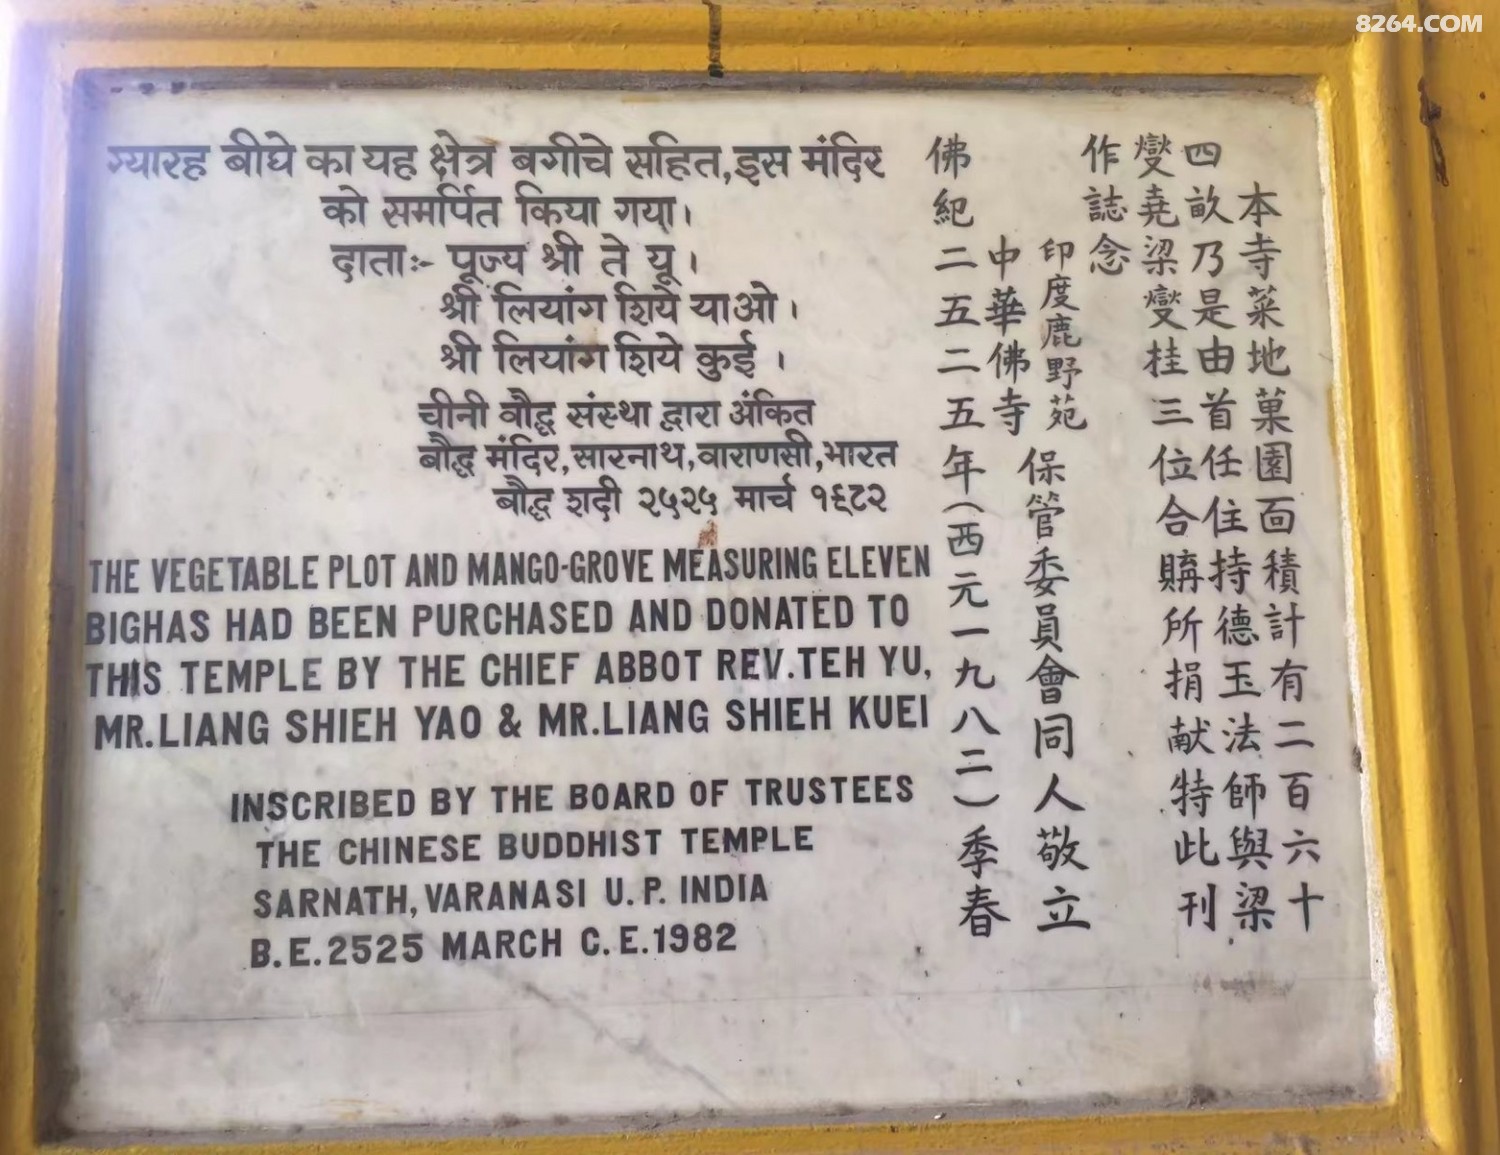 8264.COM
ग्यारह बीघे का यह क्षेत्र बगीचे सहित,इस मंदिर
को समर्पित किया गया।
दाताः- पूज्य श्री ते यू।
श्री लियांग शिये याओ।
श्री लियांग शिये कुई।
चीनी वौद्ध संस्था द्वारा अंकित
बौद्ध मंदिर,सारनाथ,वाराणसी,भारत
बौद्ध शदी २५२५ मार्च १९८२
THE VEGETABLE PLOT AND MANGO-GROVE MEASURING ELEVEN
BIGHAS HAD BEEN PURCHASED AND DONATED TO
THIS TEMPLE BY THE CHIEF ABBOT REV.TEH YU,
MR.LIANG SHIEH YAO & MR.LIANG SHIEH KUEI
INSCRIBED BY THE BOARD OF TRUSTEES
THE CHINESE BUDDHIST TEMPLE
SARNATH, VARANASI U.P. INDIA
B.E.2525 MARCH C.E.1982
本寺菜地菓園面積計有二百六十
四畝乃是由首任住持德玉法師與梁
燮堯梁燮桂三位合購所捐献特此刊
作誌念
印度鹿野苑
中華佛寺
保管委員會同人敬立
佛紀二五二五年(西元一九八二)季春